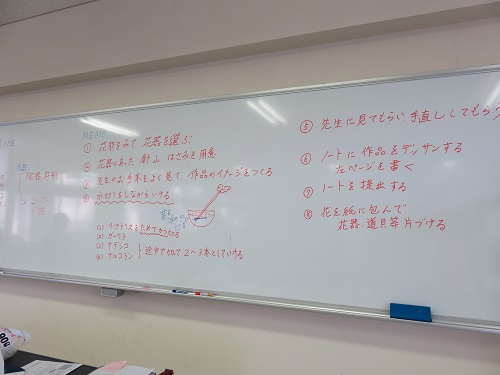 MEMO
① 花材をみて 花器を選ぶ
② 花器にあった 剣山 はさみを用意
③ 先生のお手本をよく見て 作品のイメージをつくる
④ 水切りをしながらいける
(1) リアトリスをためてから切る
(2) ガーベラ
(3) ナデシコ
(4) ナルコラン
途中で切って2〜3本としていける
⑤ 先生に見てもらい、手直ししてもらう
⑥ ノートに 作品をデッサンする
左ページを書く
⑦ ノートを提出する
⑧ 花を紙に包んで
花器、道具等片づける